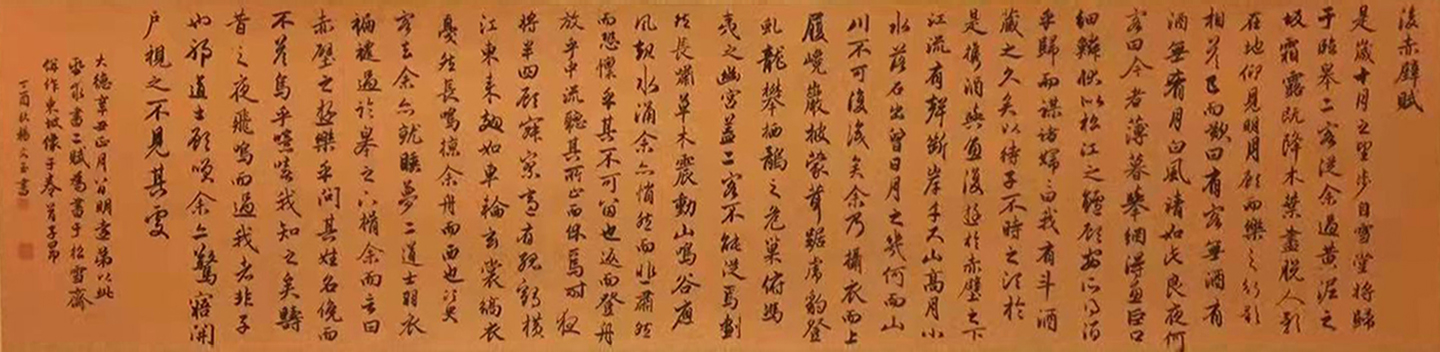 後赤壁賦
是歲十月之望步自雪堂將歸
于臨皋二客從余過黃泥之
坂霜露既降木葉盡脫人影
在地仰見明月顧而樂之行歌
相答已而歎曰有客無酒有
酒無肴月白風清如此良夜何
客曰今者薄暮舉網得魚巨口
細鱗狀似松江之鱸顧安所得酒
乎歸而謀諸婦婦曰我有斗酒
藏之久矣以待子不時之須於
是攜酒與魚復遊於赤壁之下
江流有聲斷岸千尺山高月小
水落石出曾日月之幾何而山
川不可復識矣余乃攝衣而上
履巉巖披蒙茸踞虎豹登
虬龍攀栖鶻之危巢俯馮
夷之幽宮蓋二客不能從焉劃
然長嘯草木震動山鳴谷應
風起水涌余亦悄然而悲肅然
而恐懔乎其不可留也返而登舟
放乎中流聽其所止而休焉時夜
將半四顧寂寥適有孤鶴橫
江東來翅如車輪玄裳縞衣
戛然長鳴掠余舟而西也須臾
客去余亦就睡夢二道士羽衣
褊褼過臨皋之下揖余而言曰
赤壁之遊樂乎問其姓名俛而
不答烏乎噫嘻我知之矣疇
昔之夜飛鳴而過我者非子
也邪道士顧笑余亦驚寤開
戶視之不見其處
大德辛丑正月八日明遠弟以此
帋求書二賦為書于松雪齋
併作東坡像于卷首子昂
丁酉秋楊文玉書